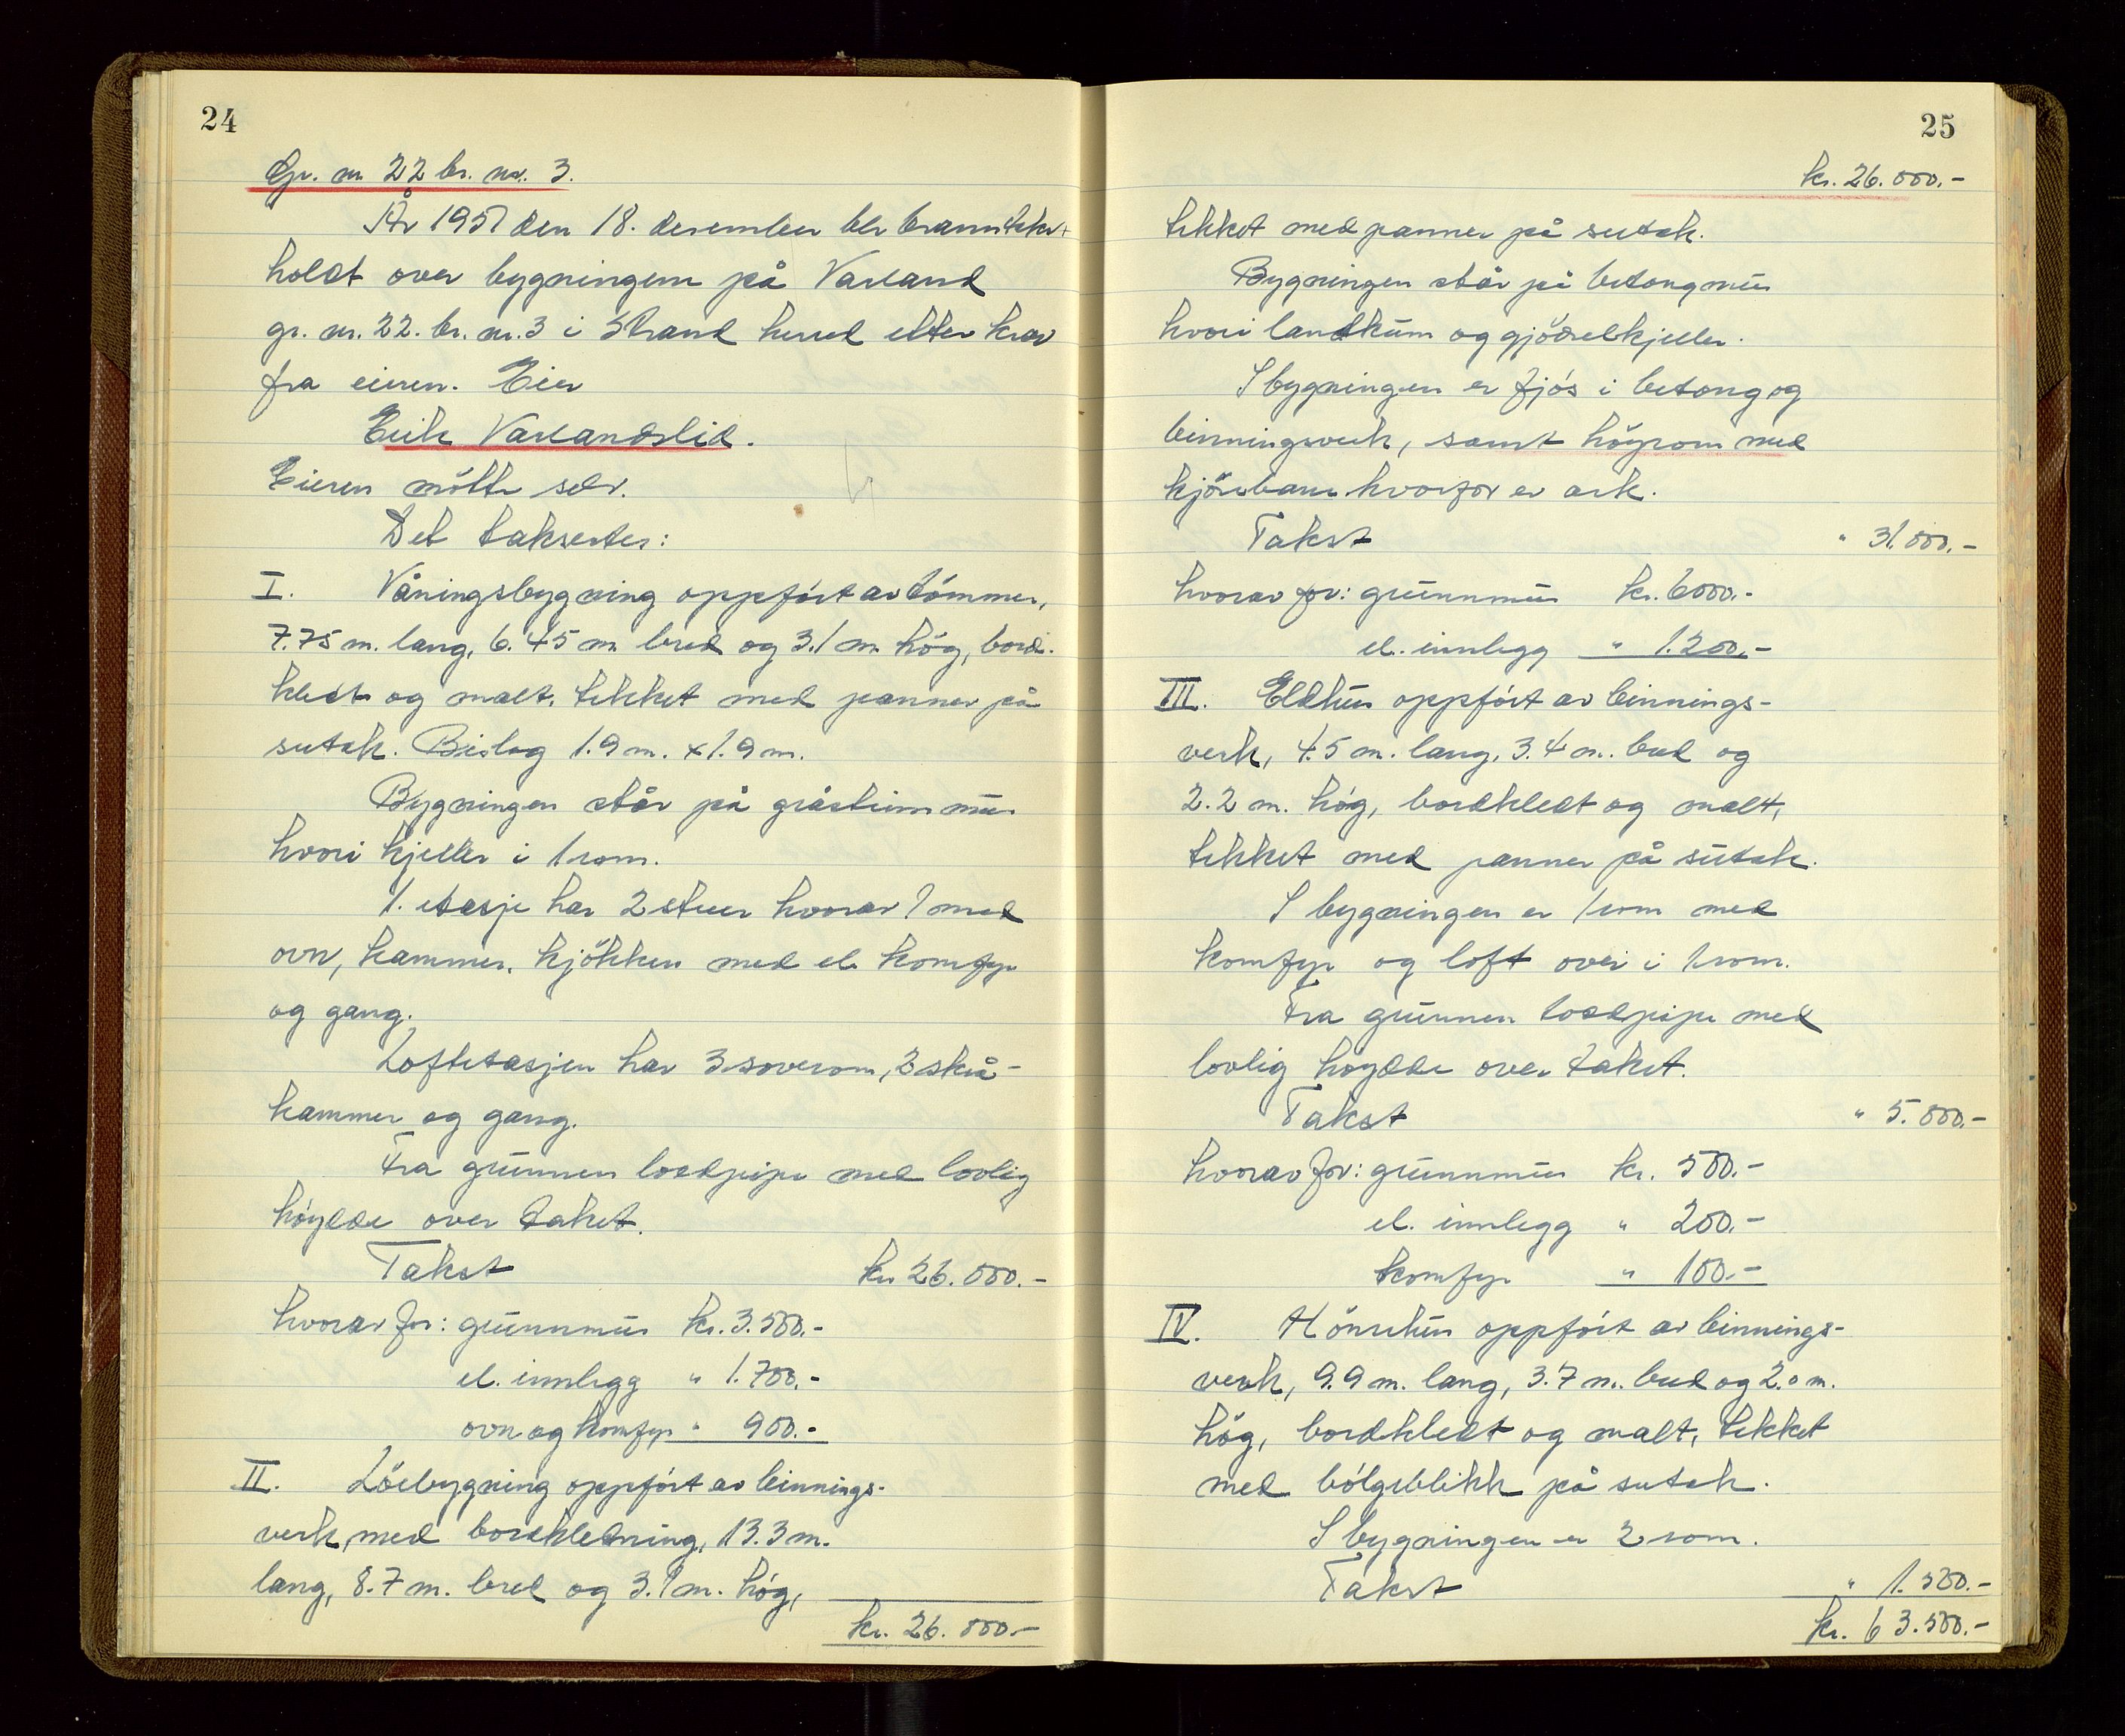 24
Gr. nr. 22 br. nr. 3.
År 1951 den 18. desember ble branntakst
holdt over bygningene på Varland
gr. nr. 22. br. nr. 3 i Strand herred etter krav
fra eieren. Eier
Eirik Varlandslid.
Eieren møtte selv.
Det takseres:
I. Våningsbygning oppført av tømmer,
7.75 m. lang, 6.45 m bred og 3.1 m høg, bord-
kledt og malt, tekket med panner på
sutak. Bislag 1.9 m. x 1.9 m.
Bygningen står på gråsteinmur
hvori kjeller i 1 rom.
1. etasje har 2 stuer hvorav 1 med
ovn, kammer, kjøkken med el. komfyr
og gang.
Loftetasjen har 3 soverom, 2 skrå-
kammer og gang.
Fra grunnen loddpipe med lovlig
høyde over taket.
Takst kr. 26.000.-
hvorav for: grunnmur kr. 3.500.-
el. innlegg " 1.700.-
ovn og komfyr " 900.-
II. Löebygning oppført av binnings-
verk, med bordkledning, 13.3 m.
lang, 8.7 m. bred og 3.1 m. høg,
kr. 26.000.-
25
kr. 26.000.-
tekket med panner på sutak.
Bygningen står på betongmur
hvori landkum og gjødselkjeller.
I bygningen er fjøs i betong og
binningsverk, samt høyrom med
kjørebane hvorfor er ark.
Takst " 31.000.-
hvorav for: grunnmur kr. 6000.-
el. innlegg " 1.200.-
III. Eldhus oppført av binnings-
verk, 4.5 m. lang, 3.4 m. bred og
2.2 m. høg, bordkledt og malt,
tekket med panner på sutak.
I bygningen er 1 rom med
komfyr og loft over i 1 rom.
Fra grunnen loddpipe med
lovlig høyde over taket.
Takst " 5.000.-
hvorav for: grunnmur kr. 500.-
el. innlegg " 200.-
komfyr " 100.-
IV. Hönsehus oppført av binnings-
verk, 9.9 m. lang, 3.7 m. bred og 2.0 m.
høg, bordkledt og malt, tekket
med bølgeblikk på sutak.
I bygningen er 2 rom.
Takst " 1.500.-
kr. 63.500.-